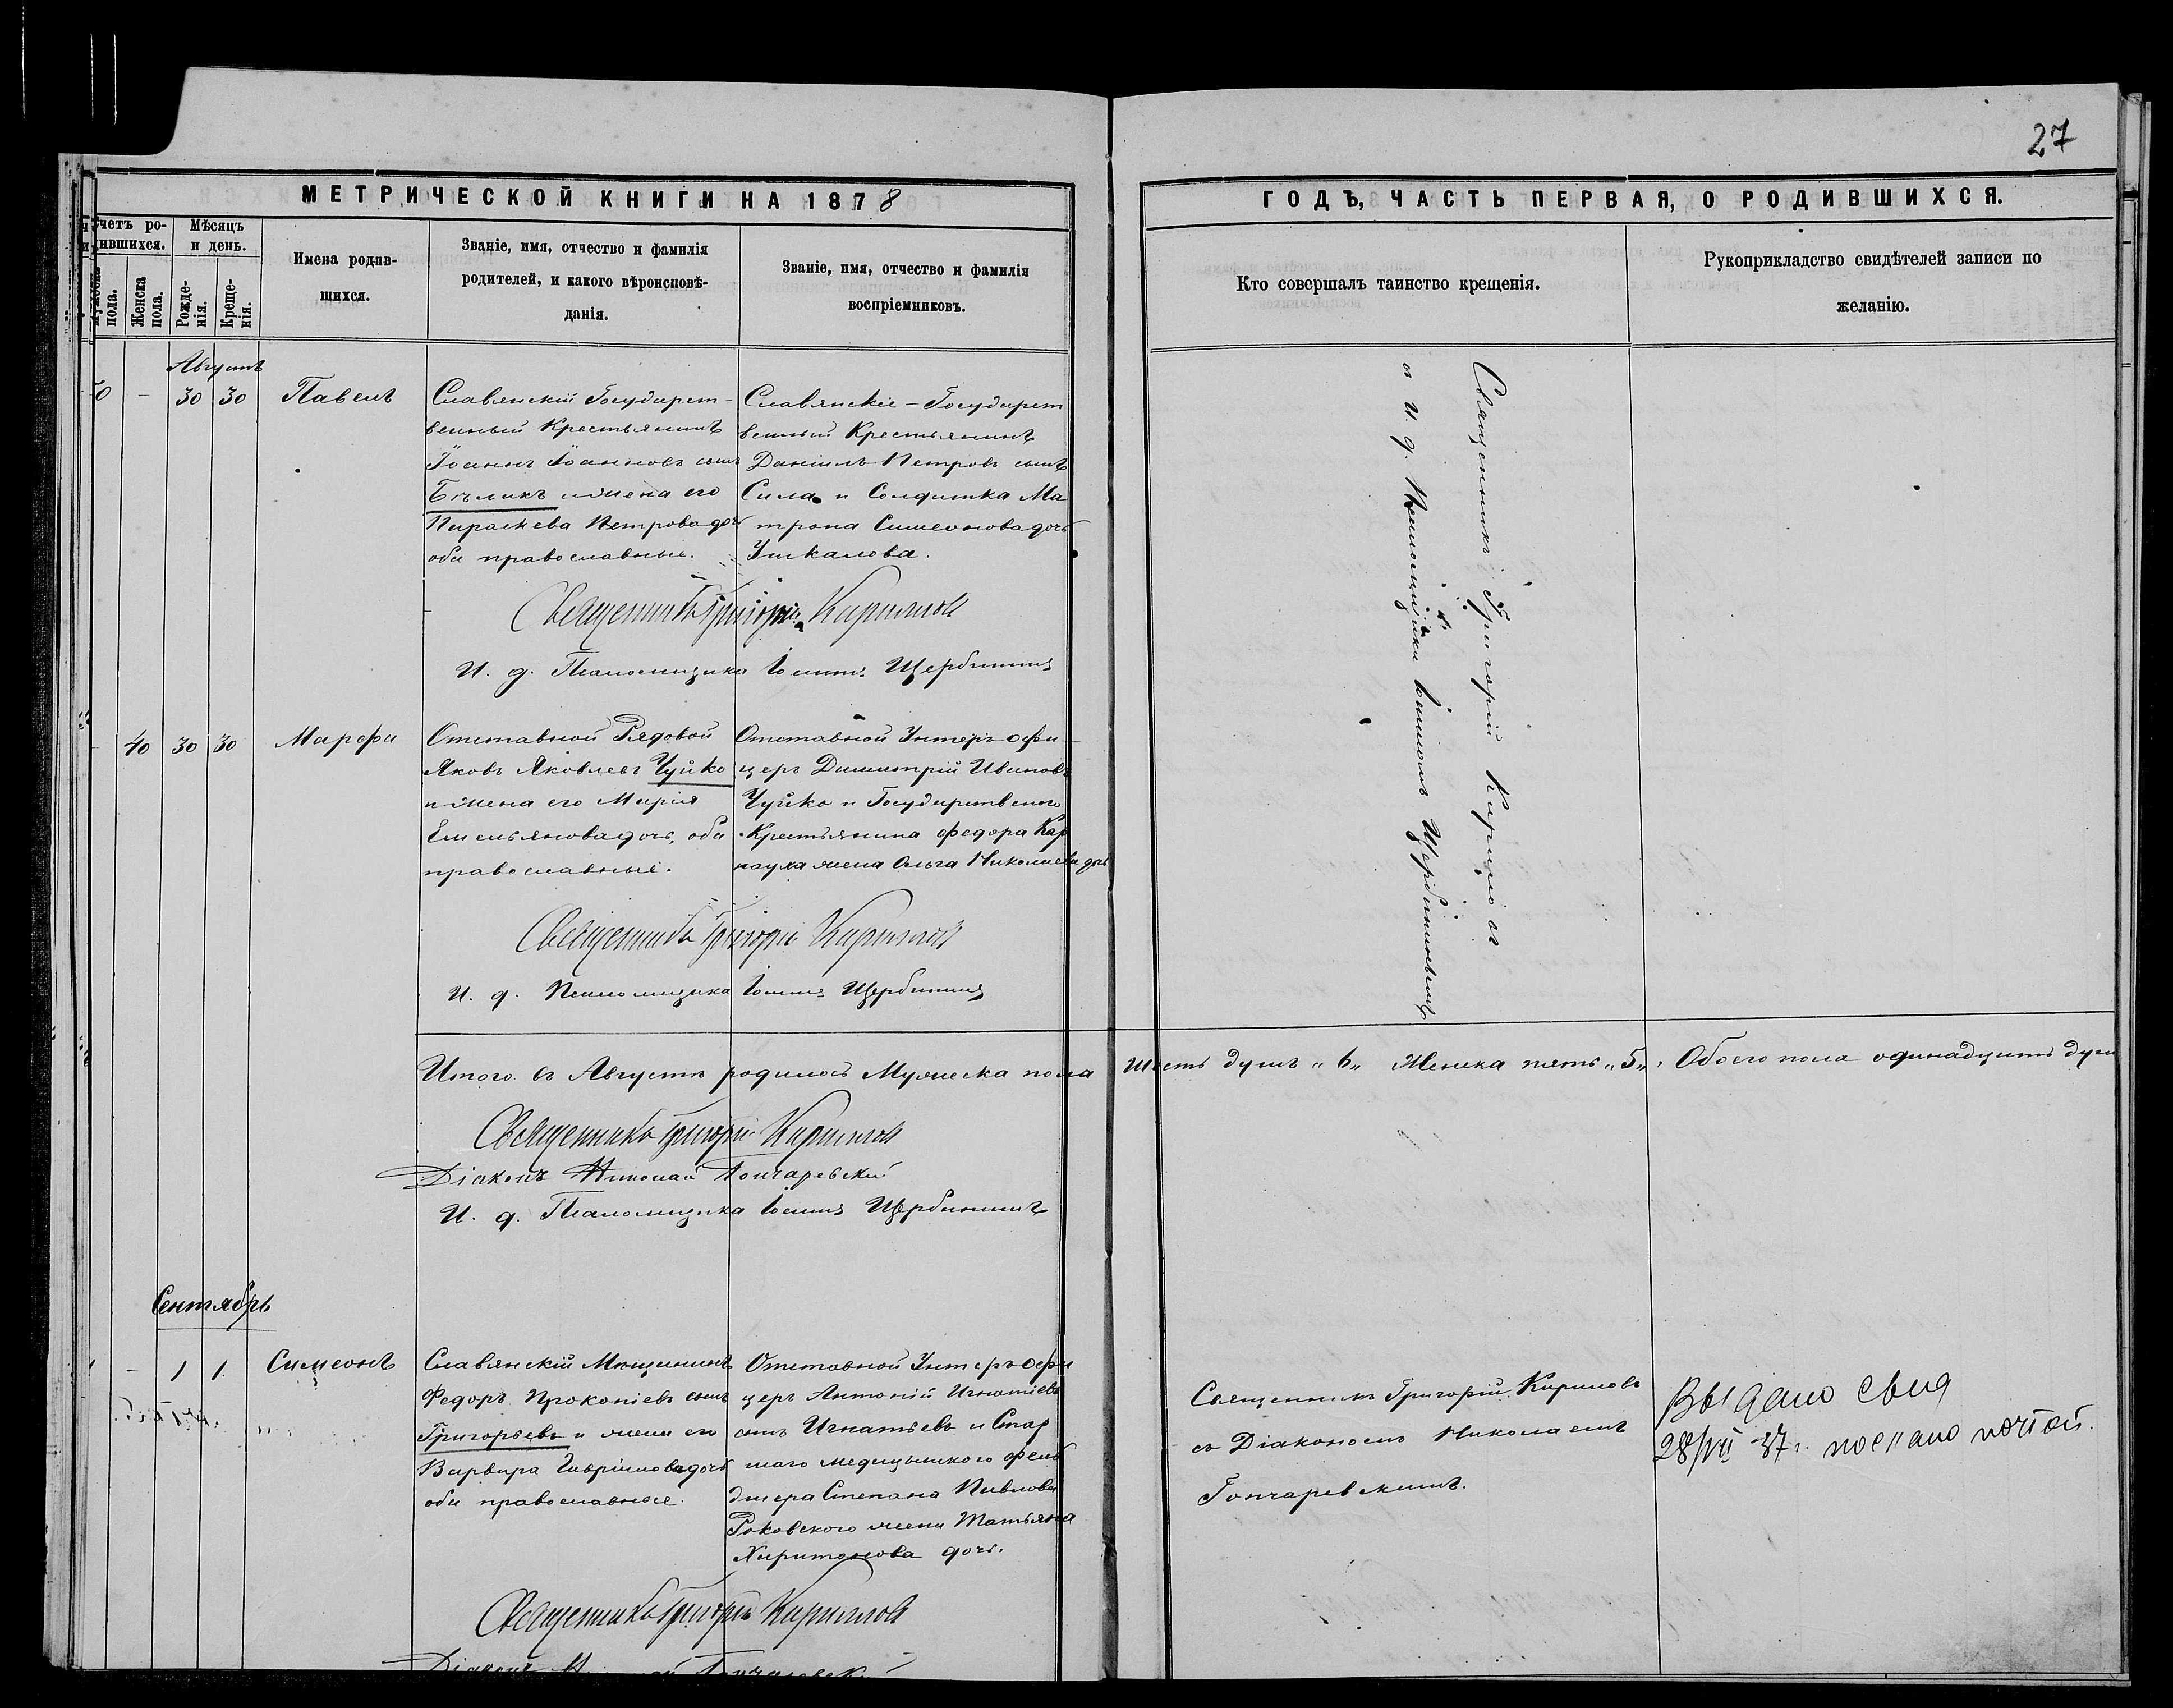 27
МЕТРИЧЕСКОЙ КНИГИ НА 1878
ГОДЪ, ЧАСТЬ ПЕРВАЯ, О РОДИВШИХСЯ.
четъ ро-
дившихся.
пола.
Женска
пола.
Мѣсяцъ
и день.
Рожде-
нія.
Креще-
нія.
Имена родив-
шихся.
Званіе, имя, отчество и фамилія
родителей, и какого вѣроисповѣ-
данія.
Званіе, имя, отчество и фамилія
воспріемниковъ.
Кто совершалъ таинство крещенія.
Рукоприкладство свидѣтелей записи по
желанію.
Августъ
- 30 30 Павелъ
Славянскій Государст-
венный Крестьянинъ
Іоаннъ Іоанновъ сынъ
Бѣликъ и жена его
Параскева Петрова дочь
оба православные.
Славянскіе - Государст
венный Крестьянинъ
Даніилъ Петровъ сынъ
Сила и Солдатка Ма
трона Симеонова дочь
Ушкалова.
Священникъ Григорій Кириловъ
съ и. д. Псаломщика Іоанномъ Щербининымъ
Священникъ Григорій Кириловъ
И. д. Псаломщика Іоаннъ Щербининъ
40 30 30 Марфа
Отставной Рядовой
Яковъ Яковлевъ Чуйко
и жена его Марія
Емельянова дочь, оба
православные.
Отставной Унтеръ-офи
церъ Димитрій Ивановъ
Чуйко и Государственого
Крестьянина Федора Кар
науха жена Ольга Николаева дочь
Священникъ Григорій Кириловъ
И. д. Псаломщика Іоаннъ Щербининъ
Итого въ Августѣ родилось Мужеска пола шесть душъ „6„ Женска пять „5„, Обоего пола одинадцать душ
Священникъ Григорій Кириловъ
Діаконъ Николай Гончаревскій
И. д. Псаломщика Іоаннъ Щербининъ
Сентябрь
- 1 1 Симеонъ
Славянскій Мѣщанинъ
Федоръ Прокопіевъ сынъ
Григорьевъ и жена его
Варвара Гавріилова дочь
оба православные.
Отставной Унтеръ-офи
церъ Антоній Игнатіевъ
сынъ Игнатьевъ и Стар
шаго медицынского фель
дшера Степана Павлова
Роковского жена Татьяна
Харитонова дочь.
Священникъ Григорій Кириловъ
съ Діакономъ Николаемъ
Гончаревскимъ.
Выдано свид
28/VII 37 г. послано почтой.
Священникъ Григорій Кириловъ